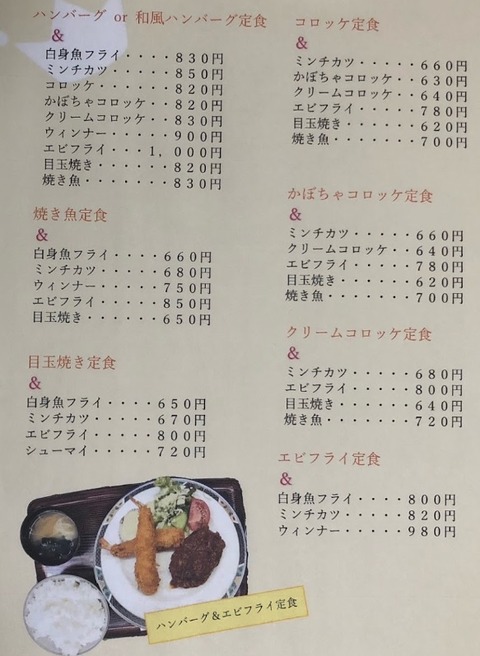 ハンバーグ or 和風ハンバーグ定食
&
白身魚フライ・・・・８３０円
ミンチカツ・・・・・８５０円
コロッケ・・・・・・８２０円
かぼちゃコロッケ・・８２０円
クリームコロッケ・・８３０円
ウィンナー・・・・・９００円
エビフライ・・・１，０００円
目玉焼き・・・・・・８２０円
焼き魚・・・・・・・８３０円
焼き魚定食
&
白身魚フライ・・・・６６０円
ミンチカツ・・・・・６８０円
ウィンナー・・・・・７５０円
エビフライ・・・・・８５０円
目玉焼き・・・・・・６５０円
目玉焼き定食
&
白身魚フライ・・・・６５０円
ミンチカツ・・・・・６７０円
エビフライ・・・・・８００円
シューマイ・・・・・７２０円
コロッケ定食
&
ミンチカツ・・・・・６６０円
かぼちゃコロッケ・・６３０円
クリームコロッケ・・６４０円
エビフライ・・・・・７８０円
目玉焼き・・・・・・６２０円
焼き魚・・・・・・・７００円
かぼちゃコロッケ定食
&
ミンチカツ・・・・・６６０円
クリームコロッケ・・６４０円
エビフライ・・・・・７８０円
目玉焼き・・・・・・６２０円
焼き魚・・・・・・・７００円
クリームコロッケ定食
&
ミンチカツ・・・・・６８０円
エビフライ・・・・・８００円
目玉焼き・・・・・・６４０円
焼き魚・・・・・・・７２０円
エビフライ定食
&
白身魚フライ・・・・８００円
ミンチカツ・・・・・８２０円
ウィンナー・・・・・９８０円
ハンバーグ＆エビフライ定食